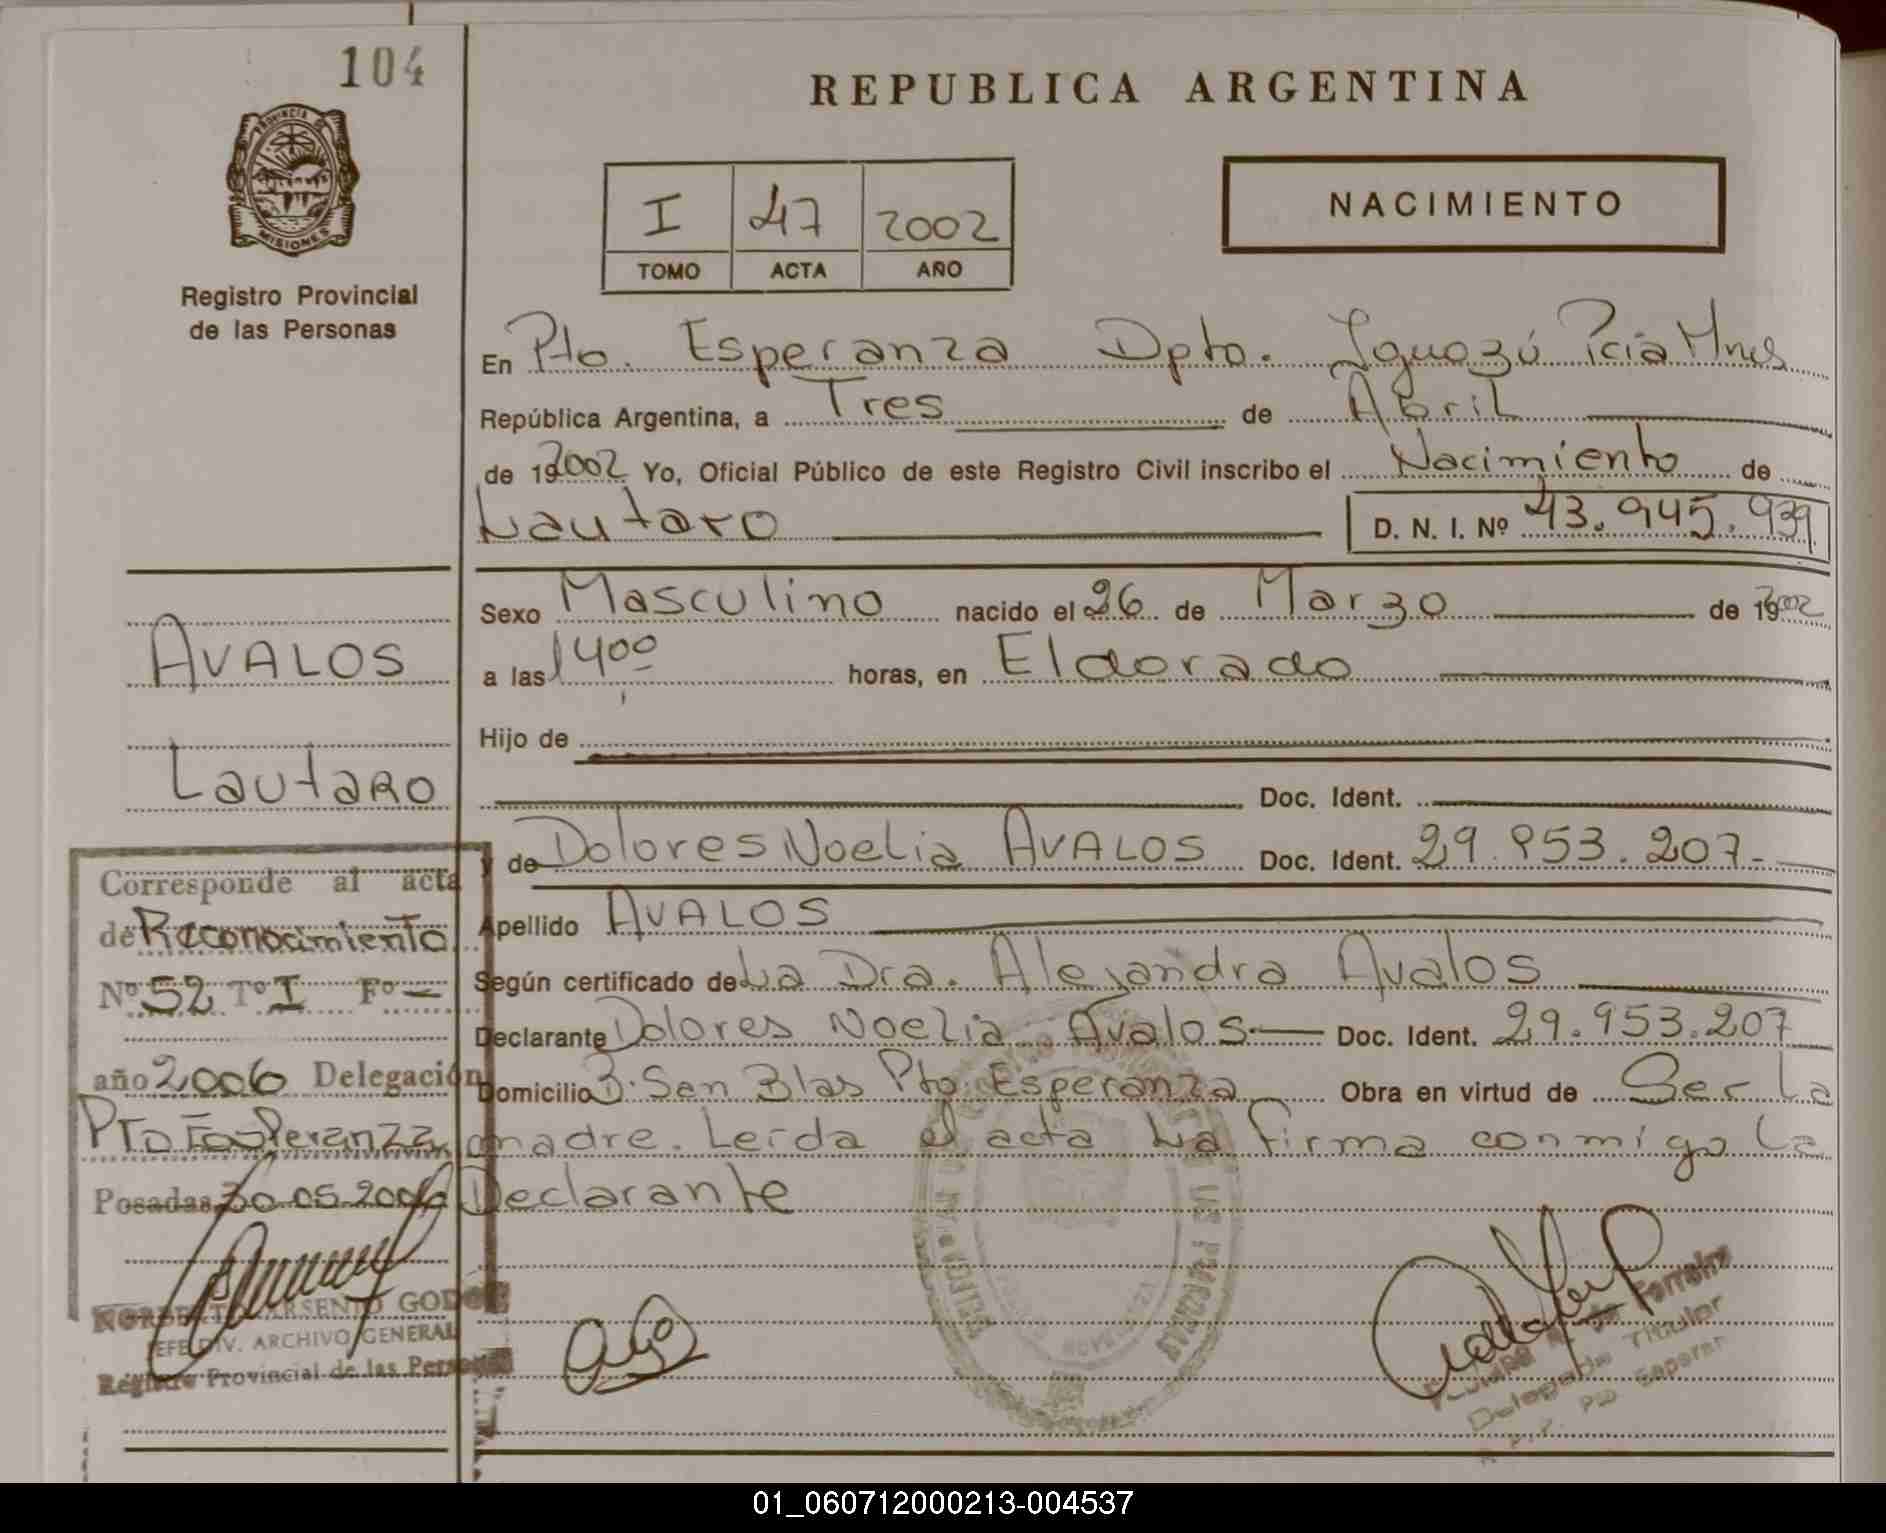 104
REPUBLICA ARGENTINA
PROVINCIA DE
MISIONES
Registro Provincial
de las Personas
I 47 2002
TOMO ACTA AÑO
NACIMIENTO
En Pto. Esperanza Dpto. Iguazú Pcia Mnes
República Argentina, a Tres de Abril
de 192002 Yo, Oficial Público de este Registro Civil inscribo el Nacimiento de
Lautaro D. N. I. Nº 43.945.939
Sexo Masculino nacido el 26 de Marzo de 192002
a las 1400 horas, en Eldorado
Hijo de
Doc. Ident.
y de Dolores Noelia AVALOS Doc. Ident. 29.953.207-
Apellido AVALOS
Según certificado de La Dra. Alejandra Avalos
Declarante Dolores Noelia Avalos Doc. Ident. 29.953.207
Domicilio B. San Blas Pto Esperanza Obra en virtud de Ser La
madre. Leída el acta La firma conmigo La
Declarante
AVALOS
Lautaro
Corresponde al acta
de Reconocimiento
Nº 52 Tº I Fº —
año 2006 Delegación
Pto Esperanza
Posadas 30-05-2006
NORBERTO ARSENIO GODOY
JEFE DIV. ARCHIVO GENERAL
Registro Provincial de las Personas
de Ferreira
Delegada Titular
01_060712000213-004537